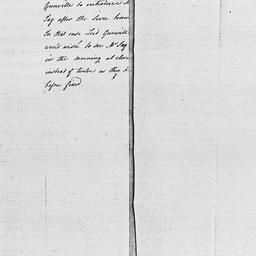 Grenville to introduce M
Jay after the Levee tomo
In that case Lord Grenvill
wou'd wish to see Mr Jay
in the morning at eleve
instead of twelve as they d
before fixed